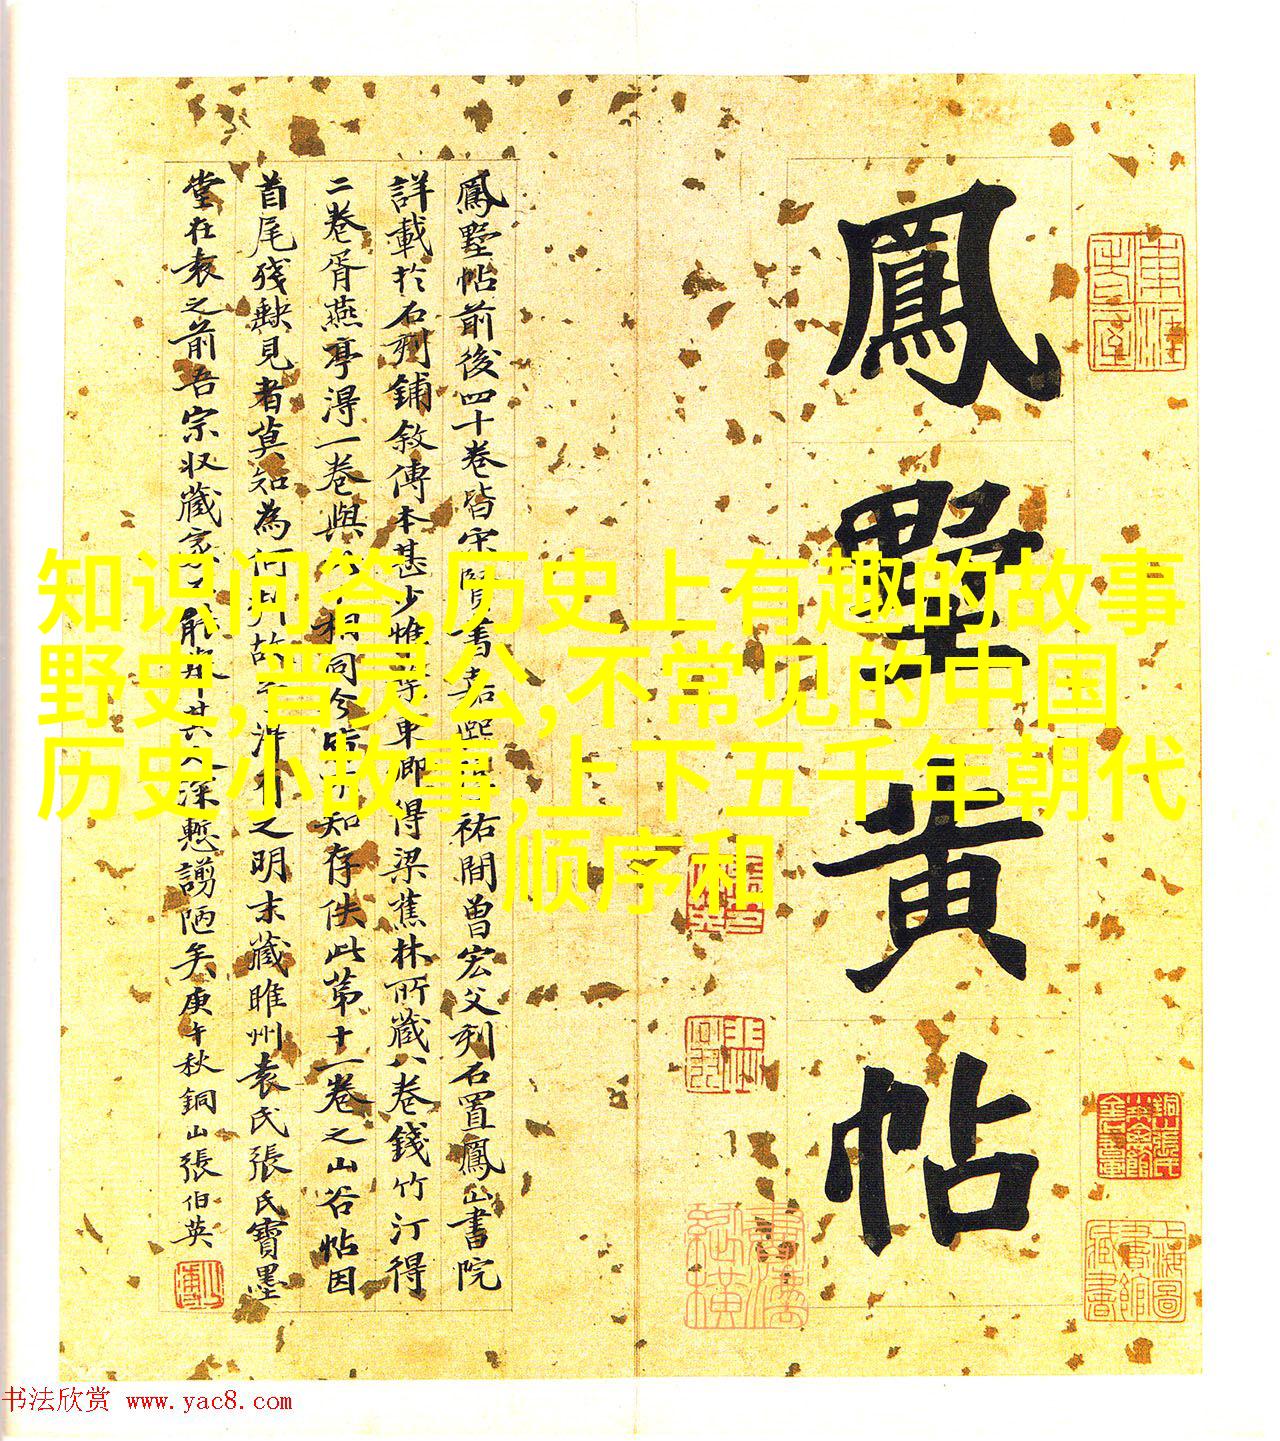 鳳墅黄帖
鳳墅帖前後四十卷皆宋賢書嘉熙祐間曾宏父刻石置鳳山書院
詳載於石刻鋪敘傳本甚少惟東卿得梁蕉林所藏八卷錢竹汀得
二卷胥燕亭淂一卷與相同今知存佚此第十一卷之山谷帖因
首尾殘缺見者莫知為何刻故之明末藏睢州袁氏張氏寶墨
堂在袁之前吾宗収藏家深慙謭陋矣庚午秋銅山張伯英
知识问答,历史上有趣的故事
野史,晋灵公,不常见的中国
历史小故事,上下五千年朝代
顺序和
上海圖書館藏書
书法欣赏 www.yac8.com